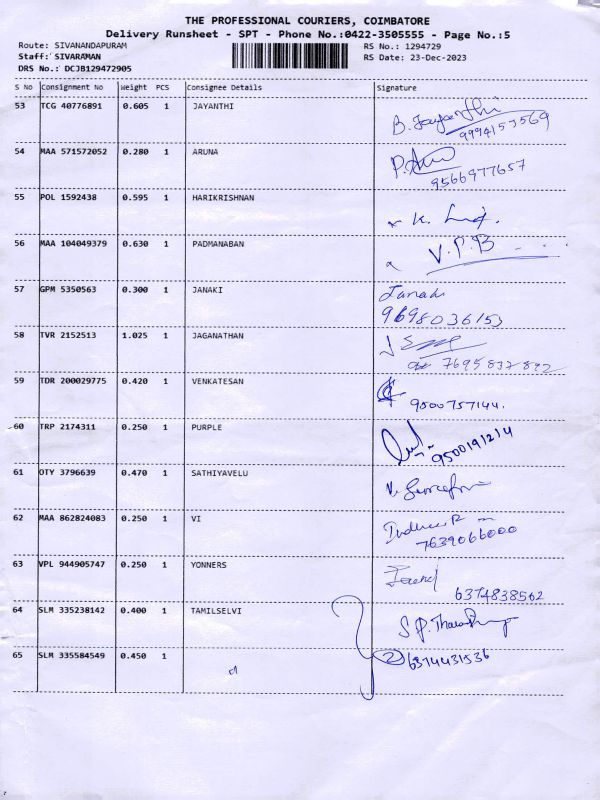 THE PROFESSIONAL COURIERS, COIMBATORE
Delivery Runsheet - SPT - Phone No.:0422-3505555 - Page No.:5
Route: SIVANANDAPURAM RS No.: 1294729
Staff: SIVARAMAN RS Date: 23-Dec-2023
DRS No.: DCJB129472905
S No Consignment No Weight PCS Consignee Details Signature
53 TCG 40776891 0.605 1 JAYANTHI
9994153569
54 MAA 571572052 0.280 1 ARUNA
9566977657
55 POL 1592438 0.595 1 HARIKRISHNAN
56 MAA 104049379 0.630 1 PADMANABAN V.P.B
57 GPM 5350563 0.300 1 JANAKI Janaki
9698036153
58 TVR 2152513 1.025 1 JAGANATHAN
7695837892
59 TDR 200029775 0.420 1 VENKATESAN 9500757144.
60 TRP 2174311 0.250 1 PURPLE 9500191214
61 OTY 3796639 0.470 1 SATHIYAVELU
62 MAA 862824083 0.250 1 VI
7639066000
63 VPL 944905747 0.250 1 YONNERS
6374838562
64 SLM 335238142 0.400 1 TAMILSELVI
65 SLM 335584549 0.450 1 6374431536